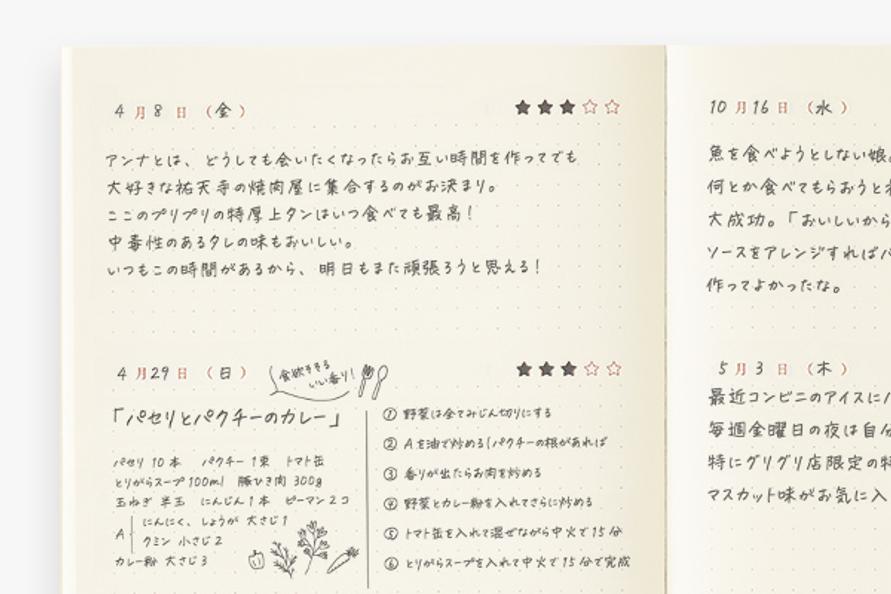 4月8日（金）
アンナとは、どうしても会いたくなったらお互い時間を作ってでも
大好きな祐天寺の焼肉屋に集合するのがお決まり。
ここのプリプリの特厚上タンはいつ食べても最高！
中毒性のあるタレの味もおいしい。
いつもこの時間があるから、明日もまた頑張ろうと思える！
4月29日（日）
食欲そそる
いい香り！
「パセリとパクチーのカレー」
パセリ 10本 パクチー 1束 トマト缶
とりがらスープ 100ml 豚ひき肉 300g
玉ねぎ 半玉 にんじん 1本 ピーマン 2コ
A にんにく、しょうが 大さじ1
クミン 小さじ2
カレー粉 大さじ3
① 野菜は全てみじん切りにする
② Aを油で炒める(パクチーの根があれば
③ 香りが出たらお肉を炒める
④ 野菜とカレー粉を入れてさらに炒める
⑤ トマト缶を入れて混ぜながら中火で15分
⑥ とりがらスープを入れて中火で15分で完成
10月16日（水）
魚を食べようとしない娘。
何とか食べてもらおうと
大成功。「おいしいから
ソースをアレンジすれば
作ってよかったな。
5月3日（木）
最近コンビニのアイスに
毎週金曜日の夜は自分
特にグリグリ店限定の特
マスカット味がお気に入